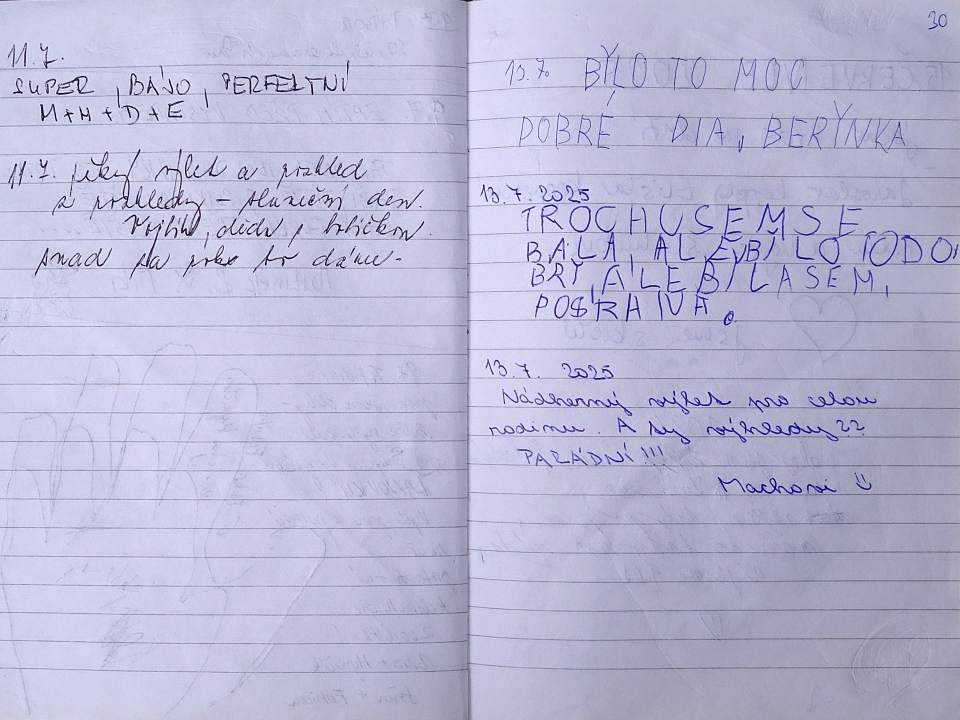 11.7.
SUPER, BÁJO, PERFEKTNÍ
M+M+D+E
11.7. pěkný výlet a rozhled
z rozhledny – sluneční den.
Vojtík, děda, babička.
snad za rok to dáme.
30
13.7. BÝLO TO MOC
DOBRÉ DIA, BERÝNKA
13.7. 2025
TROCHU SEM SE
BÁLA, ALE BÍLO TO DO
BRÝ, ALE BÍLA SEM,
POSRAIVÁ.
13.7. 2025
Nádherný výlet pro celou
rodinu. A ty výhledy??
PARÁDNÍ!!!
Machovi